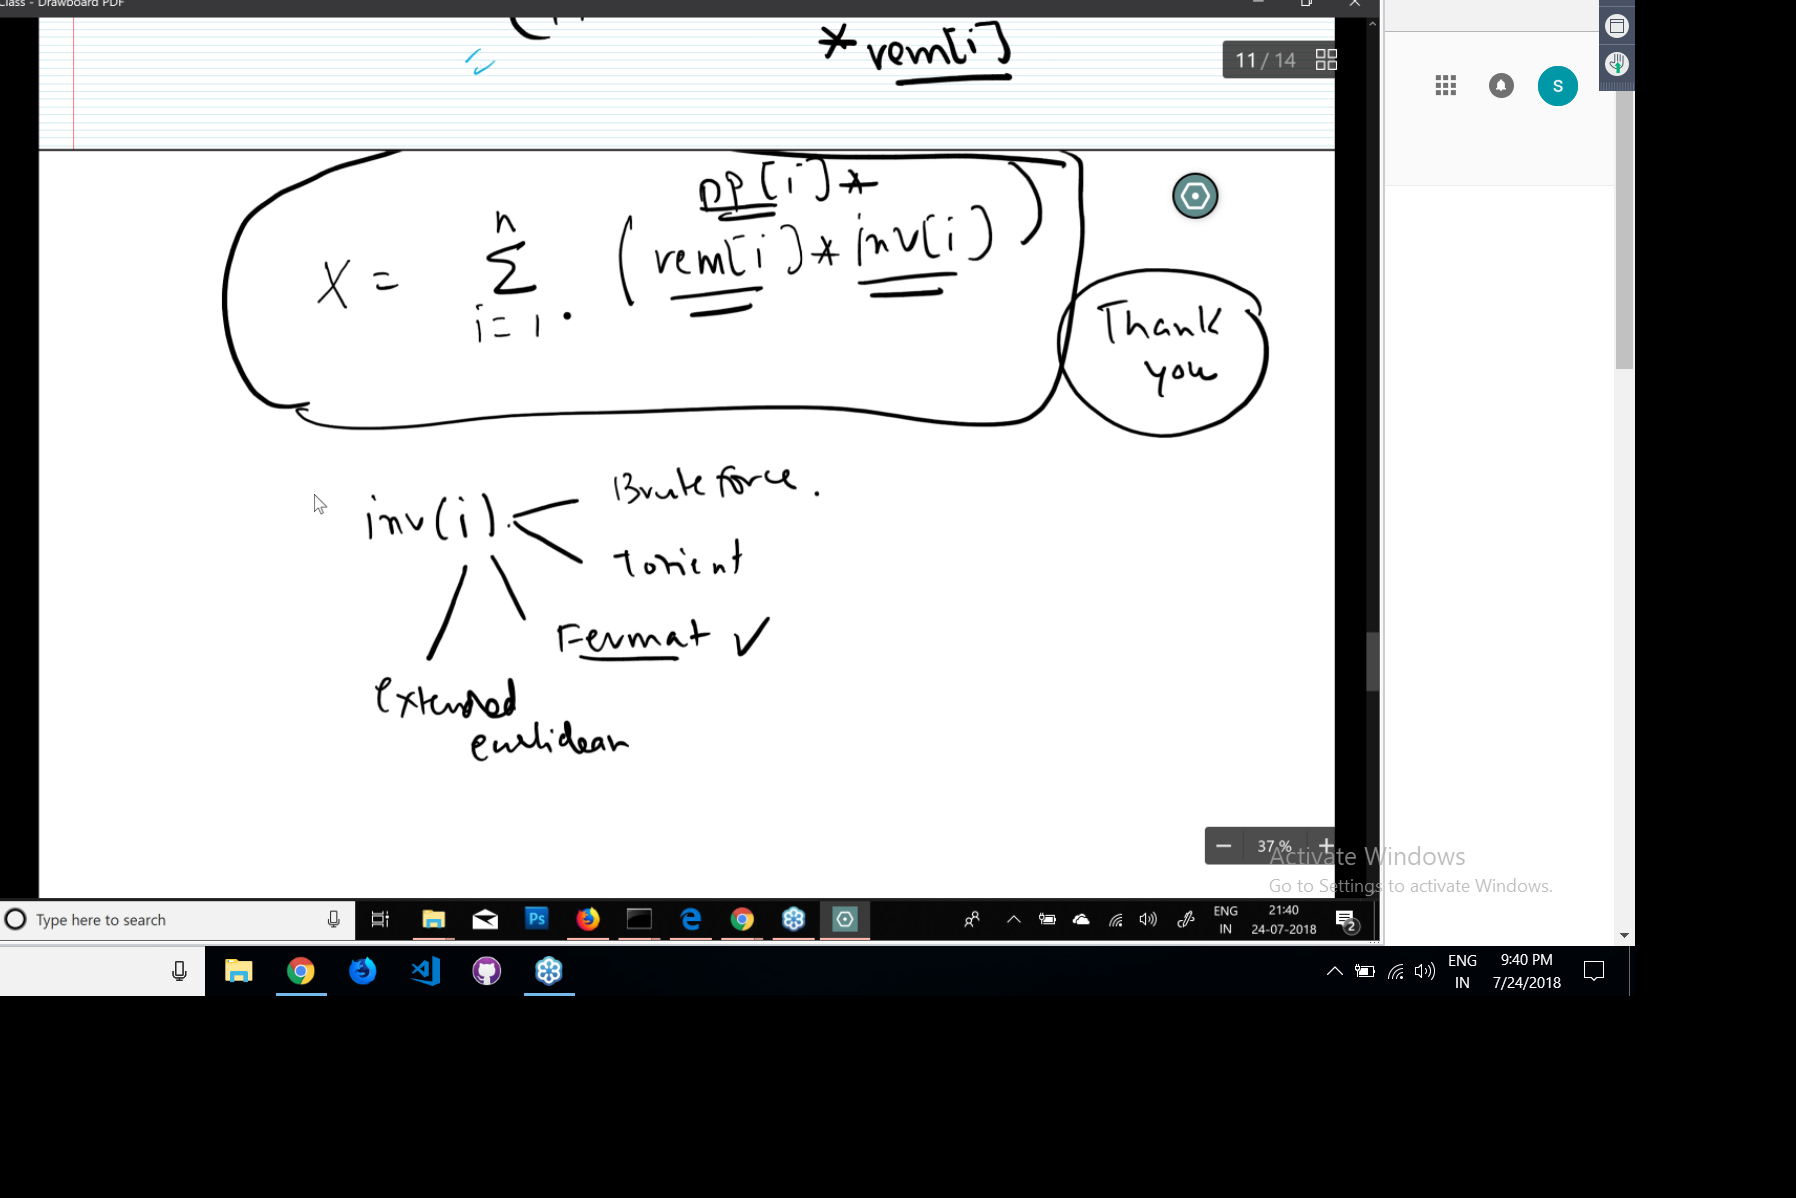 Class - Drawboard PDF
* rem[i]
11 / 14
S
DP[i] *
X = n Σ i=1 . ( rem[i] * inv[i] )
Thank
you
inv(i)
Brute force .
Totient
Fermat ✓
Extended
euclidean
37%
Activate Windows
Go to Settings to activate Windows.
Type here to search
Ps
ENG
IN
21:40
24-07-2018
2
ENG
IN
9:40 PM
7/24/2018